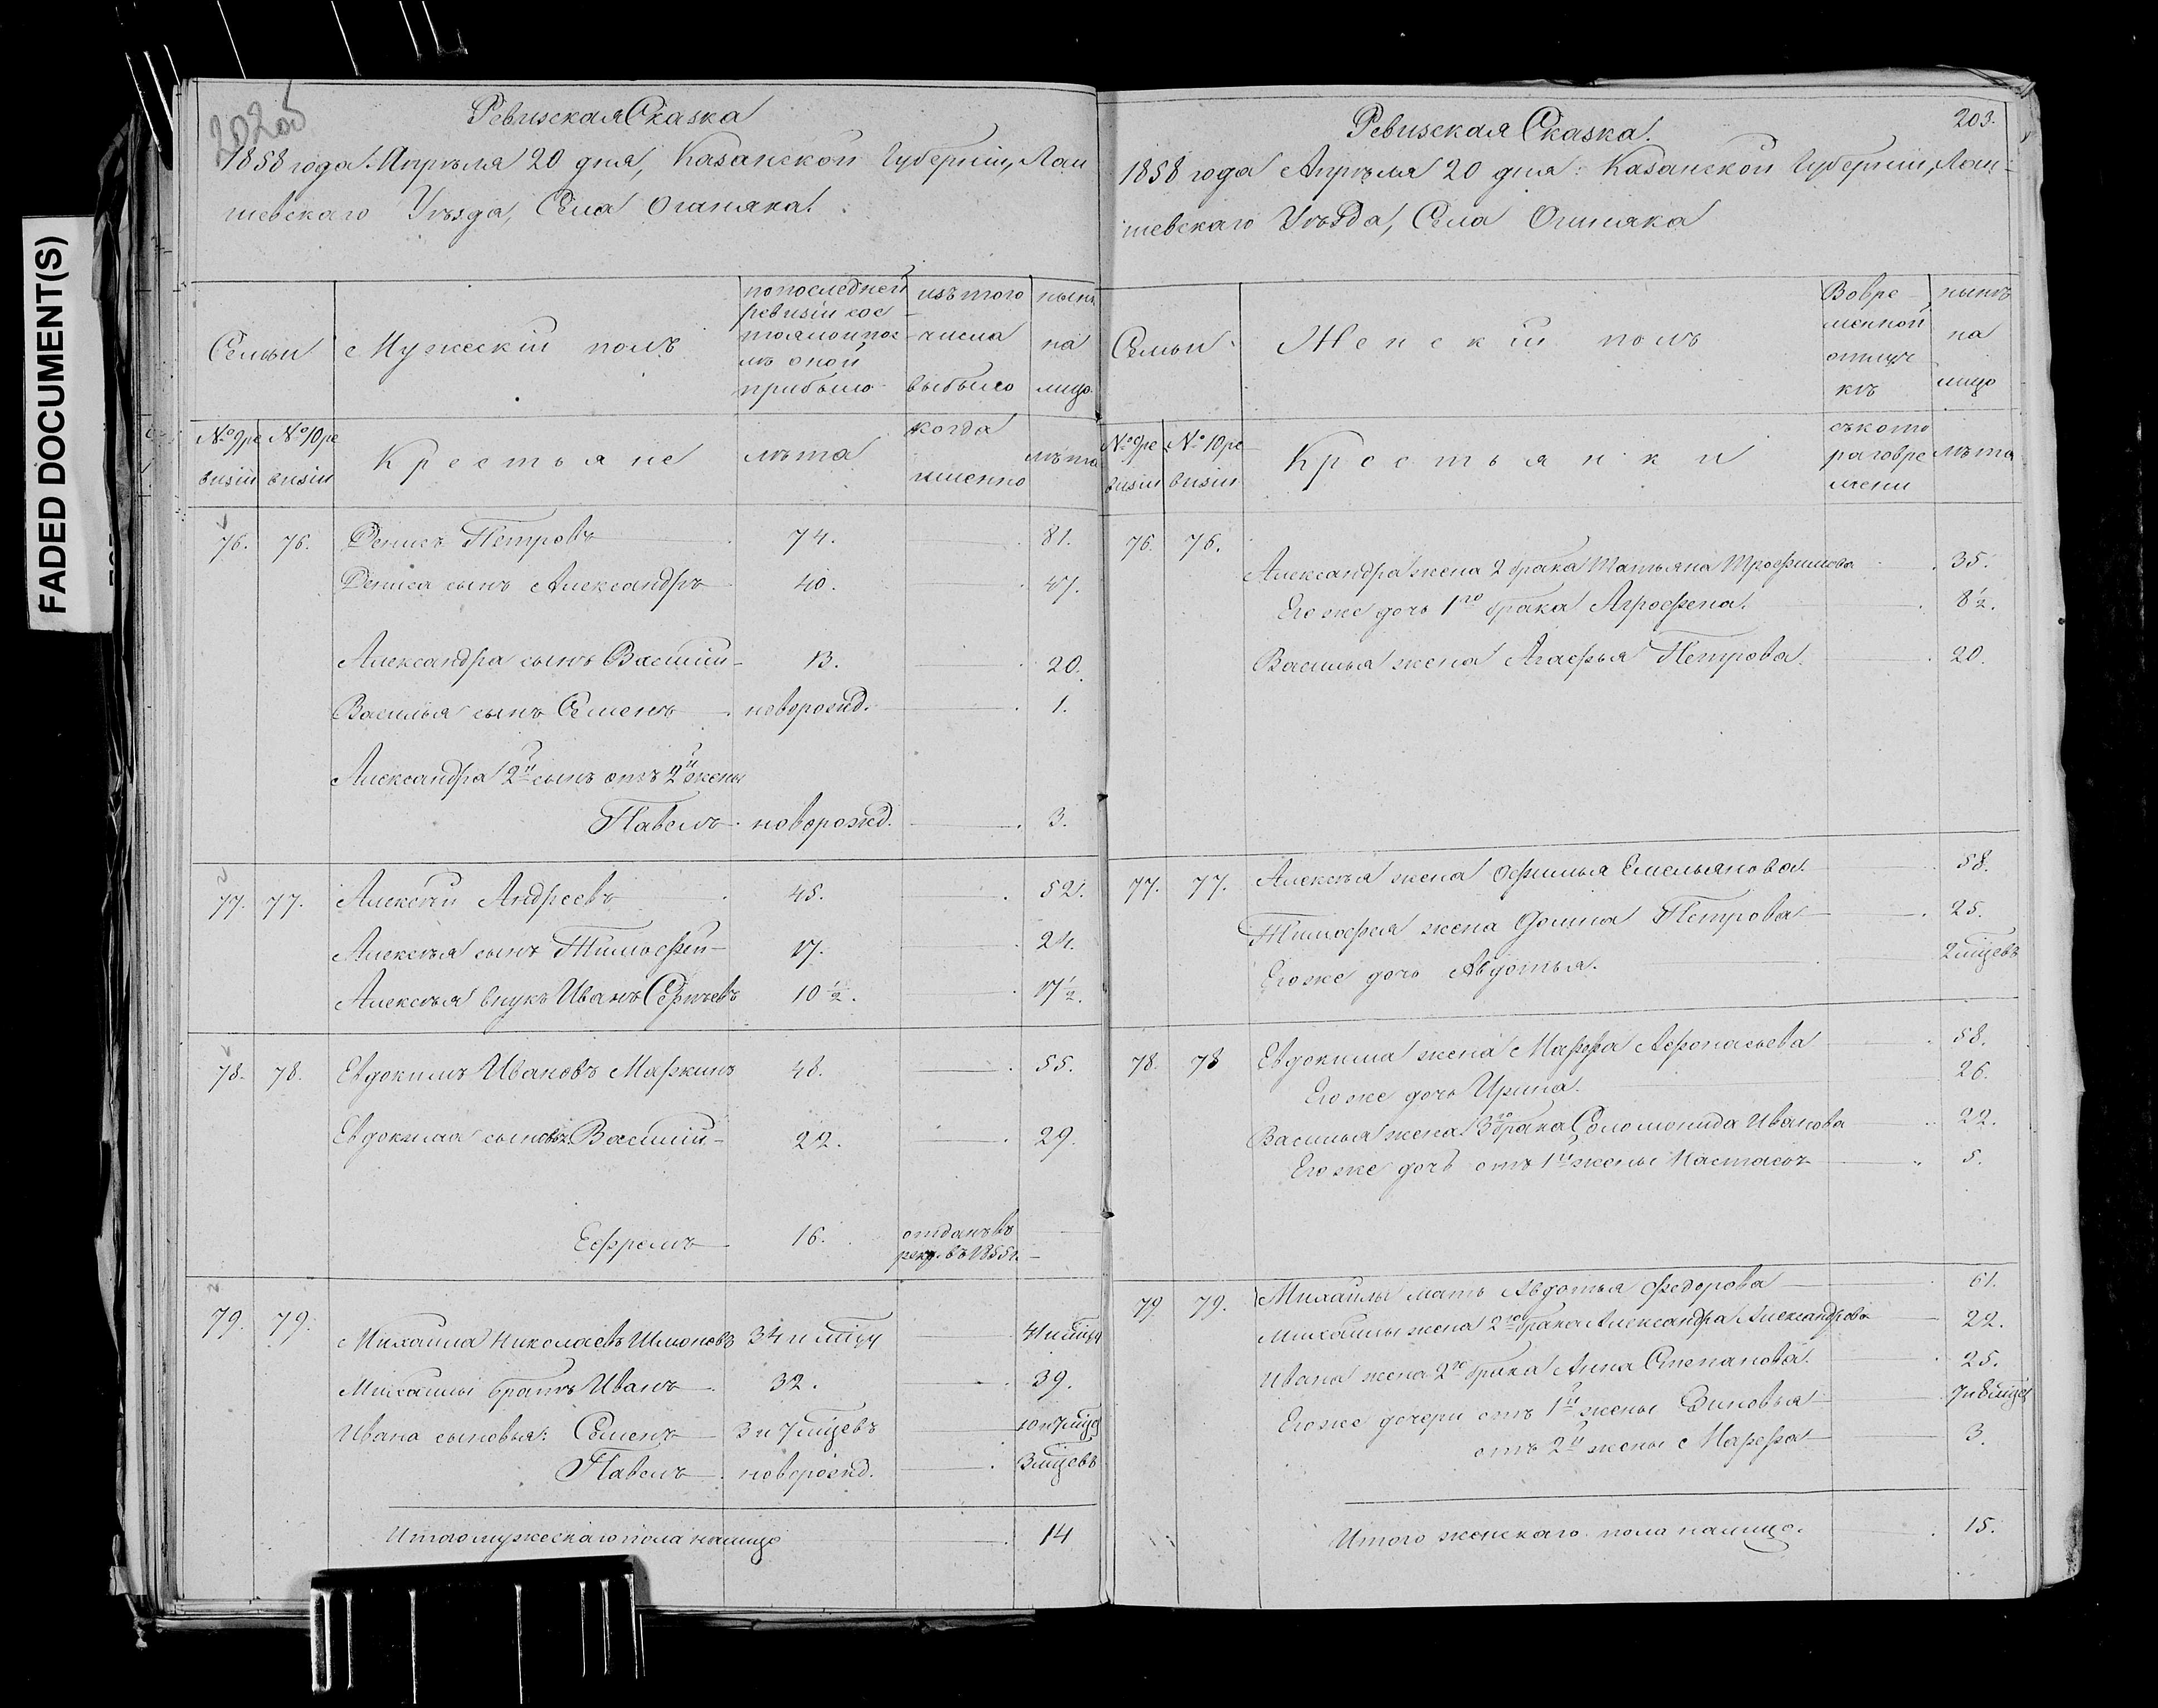 FADED DOCUMENT(S)
Ревизская Сказка
1858 года Апрѣля 20 дня, Казанской Губерніи, Лаи
шевскаго Уѣзда, Села Ошняка
Семьи
Мужескій полъ
по последней
ревизіи сос
тояло и пос
лѣ оной
прибыло
изъ того
числа
выбыло
нынѣ
на
лицо
№ 9 ре
визіи
№ 10 ре
визіи
Крестьяне
лѣта
когда
именно
лѣта
76. 76. Денисъ Петровъ 74. 81.
Дениса сынъ Александръ 40. 47.
Александра сынъ Василій 13. 20.
Василья сынъ Семенъ новорожд. 1.
Александра 2й сынъ отъ 2й жены
Павелъ новорожд. 3.
77. 77. Алексѣй Андреевъ 45. 52.
Алексѣя сынъ Тимофей 17. 24.
Алексѣя внукъ Иванъ Сергѣевъ 10 ½. 17 ½.
78. 78. Евдокимъ Ивановъ Маркинъ 48. 55.
Евдокима сыновья Василій 22. 29.
Ефремъ 16. отданъ въ
рекр. въ 1855 г.
79. 79. Михаила Николаевъ Шионовъ 34 и мѣцъ 41 и мѣцъ
Михаилы братъ Иванъ 32. 39.
Ивана сыновья: Семенъ 3 и 7 мцевъ 10 и 7 мцевъ
Павелъ новорожд. 3 мцевъ
Итого мужескаго пола налицо 14
203.
Ревизская Сказка.
1858 года Апрѣля 20 дня: Казанской Губерніи, Лаи-
шевскаго Уѣзда, Села Ошняка
Семьи
Женскій полъ
Во вре
менной
отлуч
кѣ
нынѣ
на
лицо
№ 9 ре
визіи
№ 10 ре
визіи
Крестьянки
съ кото
раго вре
мени
лѣта
76. 76.
Александра жена 2 брака Татьяна Трофимова 35.
Его же дочь 1го брака Агрофена. 8 ½.
Василья жена Агафья Петрова. 20.
77. 77. Алексѣя жена Офимья Емельянова. 58.
Тимофея жена Фомина Петрова 25.
Его же дочь Авдотья. 2 мцевъ
78. 78 Евдокима жена Марфа Афонасьева 58.
Его же дочь Ирина. 26.
Василья жена 3го брака Соломонида Иванова 22.
Его же дочь отъ 1й жены Настасья 5.
79 79. Михаилы мать Авдотья Федорова 61.
Михаилы жена 2го брака Александра Александрова 22.
Ивана жена 2го брака Анна Степанова. 25.
Его же дочери отъ 1й жены Зиновья 7 и 8 мцевъ
отъ 2й жены Марфа 3.
Итого женскаго пола налицо. 15.